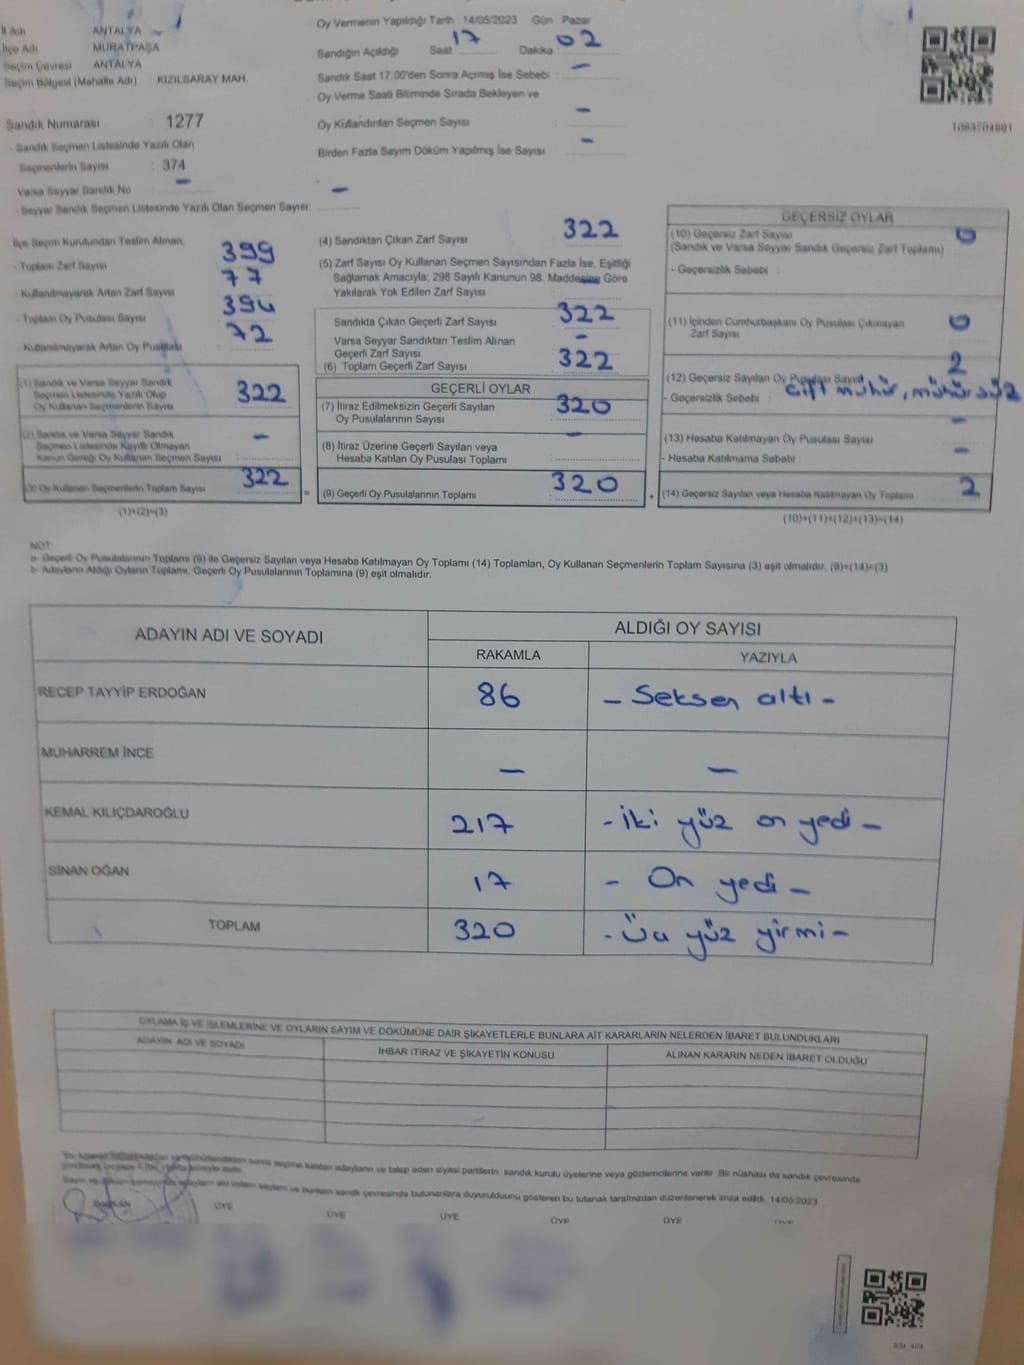 İl Adı ANTALYA
İlçe Adı MURATPAŞA
Seçim Çevresi ANTALYA
Seçim Bölgesi (Mahalle Adı) KIZILSARAY MAH.
Sandık Numarası : 1277
- Sandık Seçmen Listesinde Yazılı Olan
Seçmenlerin Sayısı : 374
Varsa Seyyar Sandık No —
- Seyyar Sandık Seçmen Listesinde Yazılı Olan Seçmen Sayısı: —
Oy Vermenin Yapıldığı Tarih : 14/05/2023 Gün : Pazar
Sandığın Açıldığı Saat 17 Dakika 02
Sandık Saat 17.00'den Sonra Açımış İse Sebebi : —
Oy Verme Saati Bitiminde Sırada Bekleyen ve
Oy Kullandırılan Seçmen Sayısı : —
Birden Fazla Sayım Döküm Yapılmış İse Sayısı : —
İlçe Seçim Kurulundan Teslim Alınan;
- Toplam Zarf Sayısı 399
- Kullanılmayarak Artan Zarf Sayısı 77
- Toplam Oy Pusulası Sayısı 394
- Kullanılmayarak Artan Oy Pusulası 72
(1) Sandık ve Varsa Seyyar Sandık
Seçmen Listesinde Yazılı Olup
Oy Kullanan Seçmenlerin Sayısı 322
(2) Sandık ve Varsa Seyyar Sandık
Seçmen Listesinde Kayıtlı Olmayan
Kanun Gereği Oy Kullanan Seçmen Sayısı —
(3) Oy Kullanan Seçmenlerin Toplam Sayısı 322
(1)+(2)=(3)
(4) Sandıktan Çıkan Zarf Sayısı 322
(5) Zarf Sayısı Oy Kullanan Seçmen Sayısından Fazla İse, Eşitliği
Sağlamak Amacıyla; 298 Sayılı Kanunun 98. Maddesine Göre
Yakılarak Yok Edilen Zarf Sayısı —
Sandıkta Çıkan Geçerli Zarf Sayısı 322
Varsa Seyyar Sandıktan Teslim Alınan
Geçerli Zarf Sayısı —
(6) Toplam Geçerli Zarf Sayısı 322
GEÇERLİ OYLAR
(7) İtiraz Edilmeksizin Geçerli Sayılan
Oy Pusulasının Sayısı 320
(8) İtiraz Üzerine Geçerli Sayılan veya
Hesaba Katılan Oy Pusulası Toplamı —
= (9) Geçerli Oy Pusulalarının Toplamı 320
GEÇERSİZ OYLAR
(10) Geçersiz Zarf Sayısı 0
(Sandık ve Varsa Seyyar Sandık Geçersiz Zarf Toplamı)
- Geçersizlik Sebebi :
(11) İçinden Cumhurbaşkanı Oy Pusulası Çıkmayan
Zarf Sayısı 0
(12) Geçersiz Sayılan Oy Pusulası Sayısı 2
- Geçersizlik Sebebi : çift mühür, mühürsüz
(13) Hesaba Katılmayan Oy Pusulası Sayısı —
- Hesaba Katılmama Sebebi : —
+ (14) Geçersiz Sayılan veya Hesaba Katılmayan Oy Toplamı 2
(10)+(11)+(12)+(13)=(14)
NOT:
a- Geçerli Oy Pusulalarının Toplamı (9) ile Geçersiz Sayılan veya Hesaba Katılmayan Oy Toplamı (14) Toplamları, Oy Kullanan Seçmenlerin Toplam Sayısına (3) eşit olmalıdır. (9)+(14)=(3)
b- Adayların Aldığı Oyların Toplamı, Geçerli Oy Pusulalarının Toplamına (9) eşit olmalıdır.
ADAYIN ADI VE SOYADI ALDIĞI OY SAYISI
RAKAMLA YAZIYLA
RECEP TAYYİP ERDOĞAN 86 – Seksen altı –
MUHARREM İNCE — —
KEMAL KILIÇDAROĞLU 217 – iki yüz on yedi –
SİNAN OĞAN 17 – On yedi –
TOPLAM 320 – Üç yüz yirmi –
OYLAMA İŞ VE İŞLEMLERİNE VE OYLARIN SAYIM VE DÖKÜMÜNE DAİR ŞİKAYETLERLE BUNLARA AİT KARARLARIN NELERDEN İBARET BULUNDUKLARI
ADAYIN ADI VE SOYADI İHBAR İTİRAZ VE ŞİKAYETİN KONUSU ALINAN KARARIN NEDEN İBARET OLDUĞU
sonra seçime katılan adayların ve talep eden siyasi partilerin sandık kurulu üyelerine veya gözlemcilerine verilir. Bir nüshası da sandık çevresinde
ve bunların sandık çevresinde bulunanlara duyurulduunu gösteren bu tutanak tarafımızdan düzenlenerek imza edildi. 14/05/2023
ÜYE ÜYE ÜYE ÜYE ÜYE ÜYE